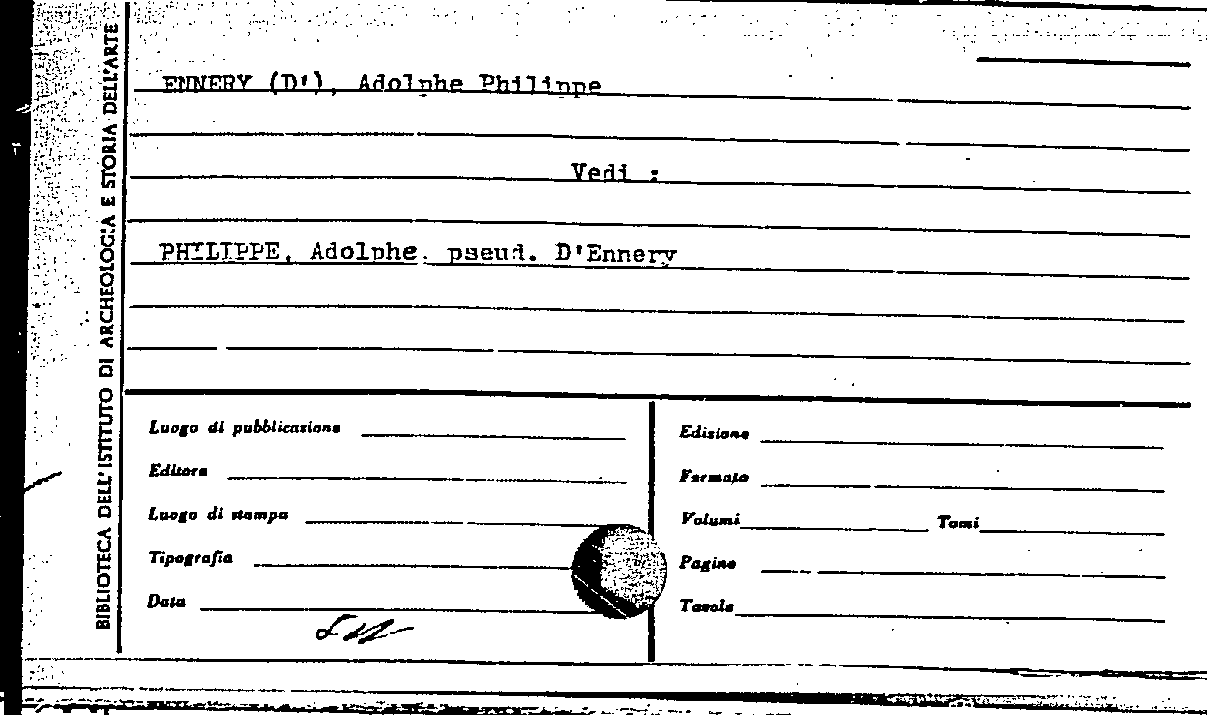 BIBLIOTECA DELL'ISTITUTO DI ARCHEOLOGIA E STORIA DELL'ARTE
ENNERY (D'), Adolphe Philippe
Vedi :
PHILIPPE, Adolphe, pseud. D'Ennery
Luogo di pubblicazione
Editore
Luogo di stampa
Tipografia
Data
Edizione
Formato
Volumi Tomi
Pagine
Tavole